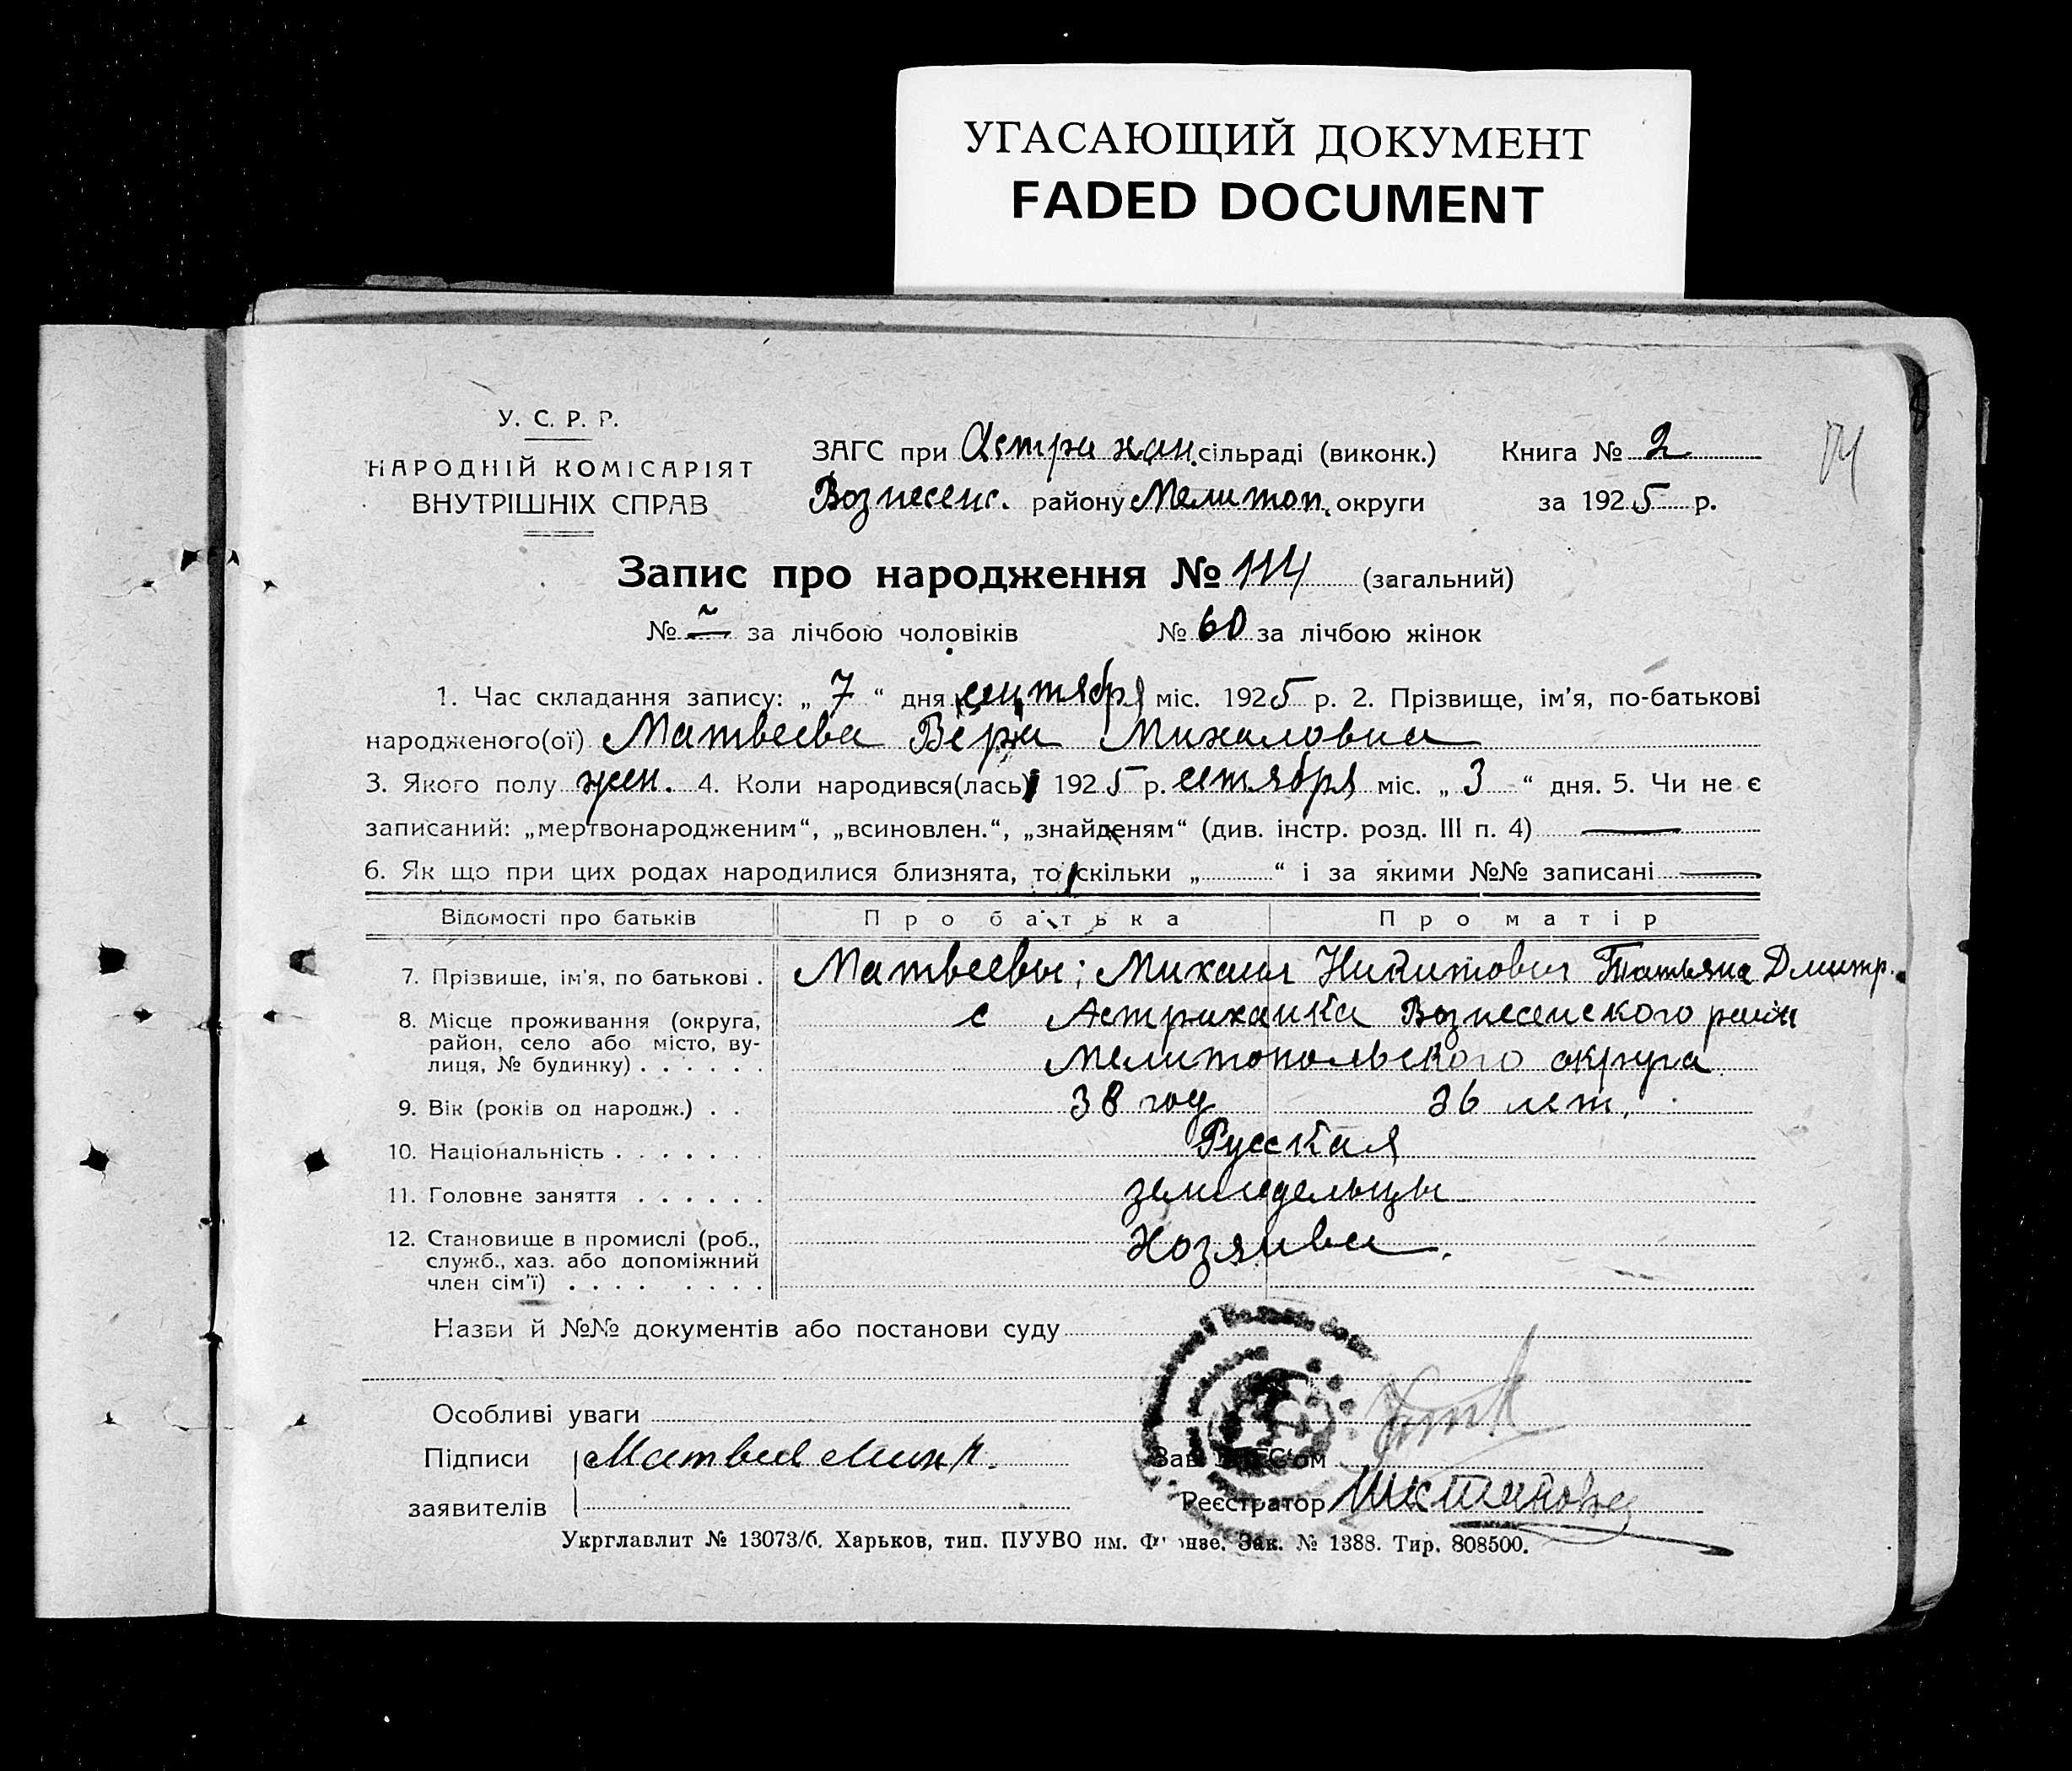 УГАСАЮЩИЙ ДОКУМЕНТ
FADED DOCUMENT
У. С. Р. Р.
НАРОДНІЙ КОМІСАРІЯТ
ВНУТРІШНІХ СПРАВ
ЗАГС при Астрахан. сільраді (виконк.) Книга № 2
Вознесенс. району Мелитоп. округи за 1925 р.
Запис про народження № 114 (загальний)
№ за лічбою чоловіків № 60 за лічбою жінок
1. Час складання запису: „ 7 “ дня сентября міс. 1925 р. 2. Прізвище, ім'я, по-батькові
народженого(ої) Матвеева Вера Михаловна
3. Якого полу жен. 4. Коли народився(лась) 1925 р. сетября міс. „ 3 “ дня. 5. Чи не є
записаний: „мертвонародженим“, „всиновлен.“, „знайденям“ (див. інстр. розд. III п. 4)
6. Як що при цих родах народилися близнята, то скільки „ “ і за якими №№ записані
Відомості про батьків Про батька Про матір
7. Прізвище, ім'я, по батькові . Матвеевы; Михаил Никитович Татьяна Дмитр.
8. Місце проживання (округа, с Астраханка Вознесенского район
район, село або місто, ву-
лиця, № будинку) . . . . . . Мелитопольского округа
9. Вік (років од народж.) . . 38 год 36 лет.
10. Національність . . . . . . . Русская
11. Головне заняття . . . . . . земледельцы
12. Становище в промислі (роб., Хозяива.
служб., хаз. або допоміжний
член сім'ї) . . . . . . . .
Назви й №№ документів або постанови суду
Особливі уваги
Підписи Матвеев Мих Н.
Зав. ЗАГС'ом
заявителів
Реєстратор
Укрглавлит № 13073/б. Харьков, тип. ПУУВО им. Фрунзе. Зак. № 1388. Тир. 808500.